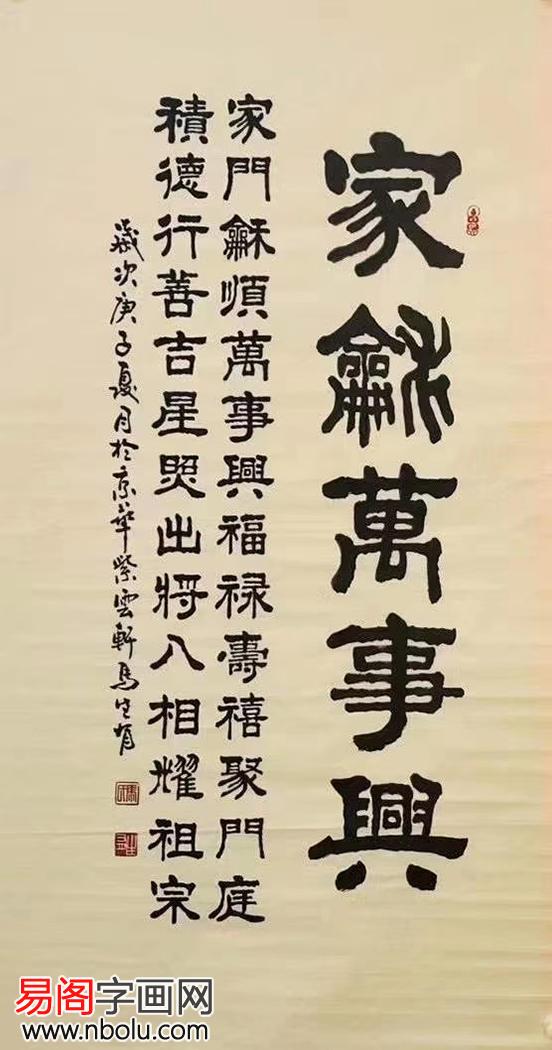 家龢萬事興
家門龢順萬事興福禄壽禧聚門庭
積德行善吉星照出將入相耀祖宗
歲次庚子夏月於京華紫雲軒馬生有
易阁字画网
www.nbolu.com